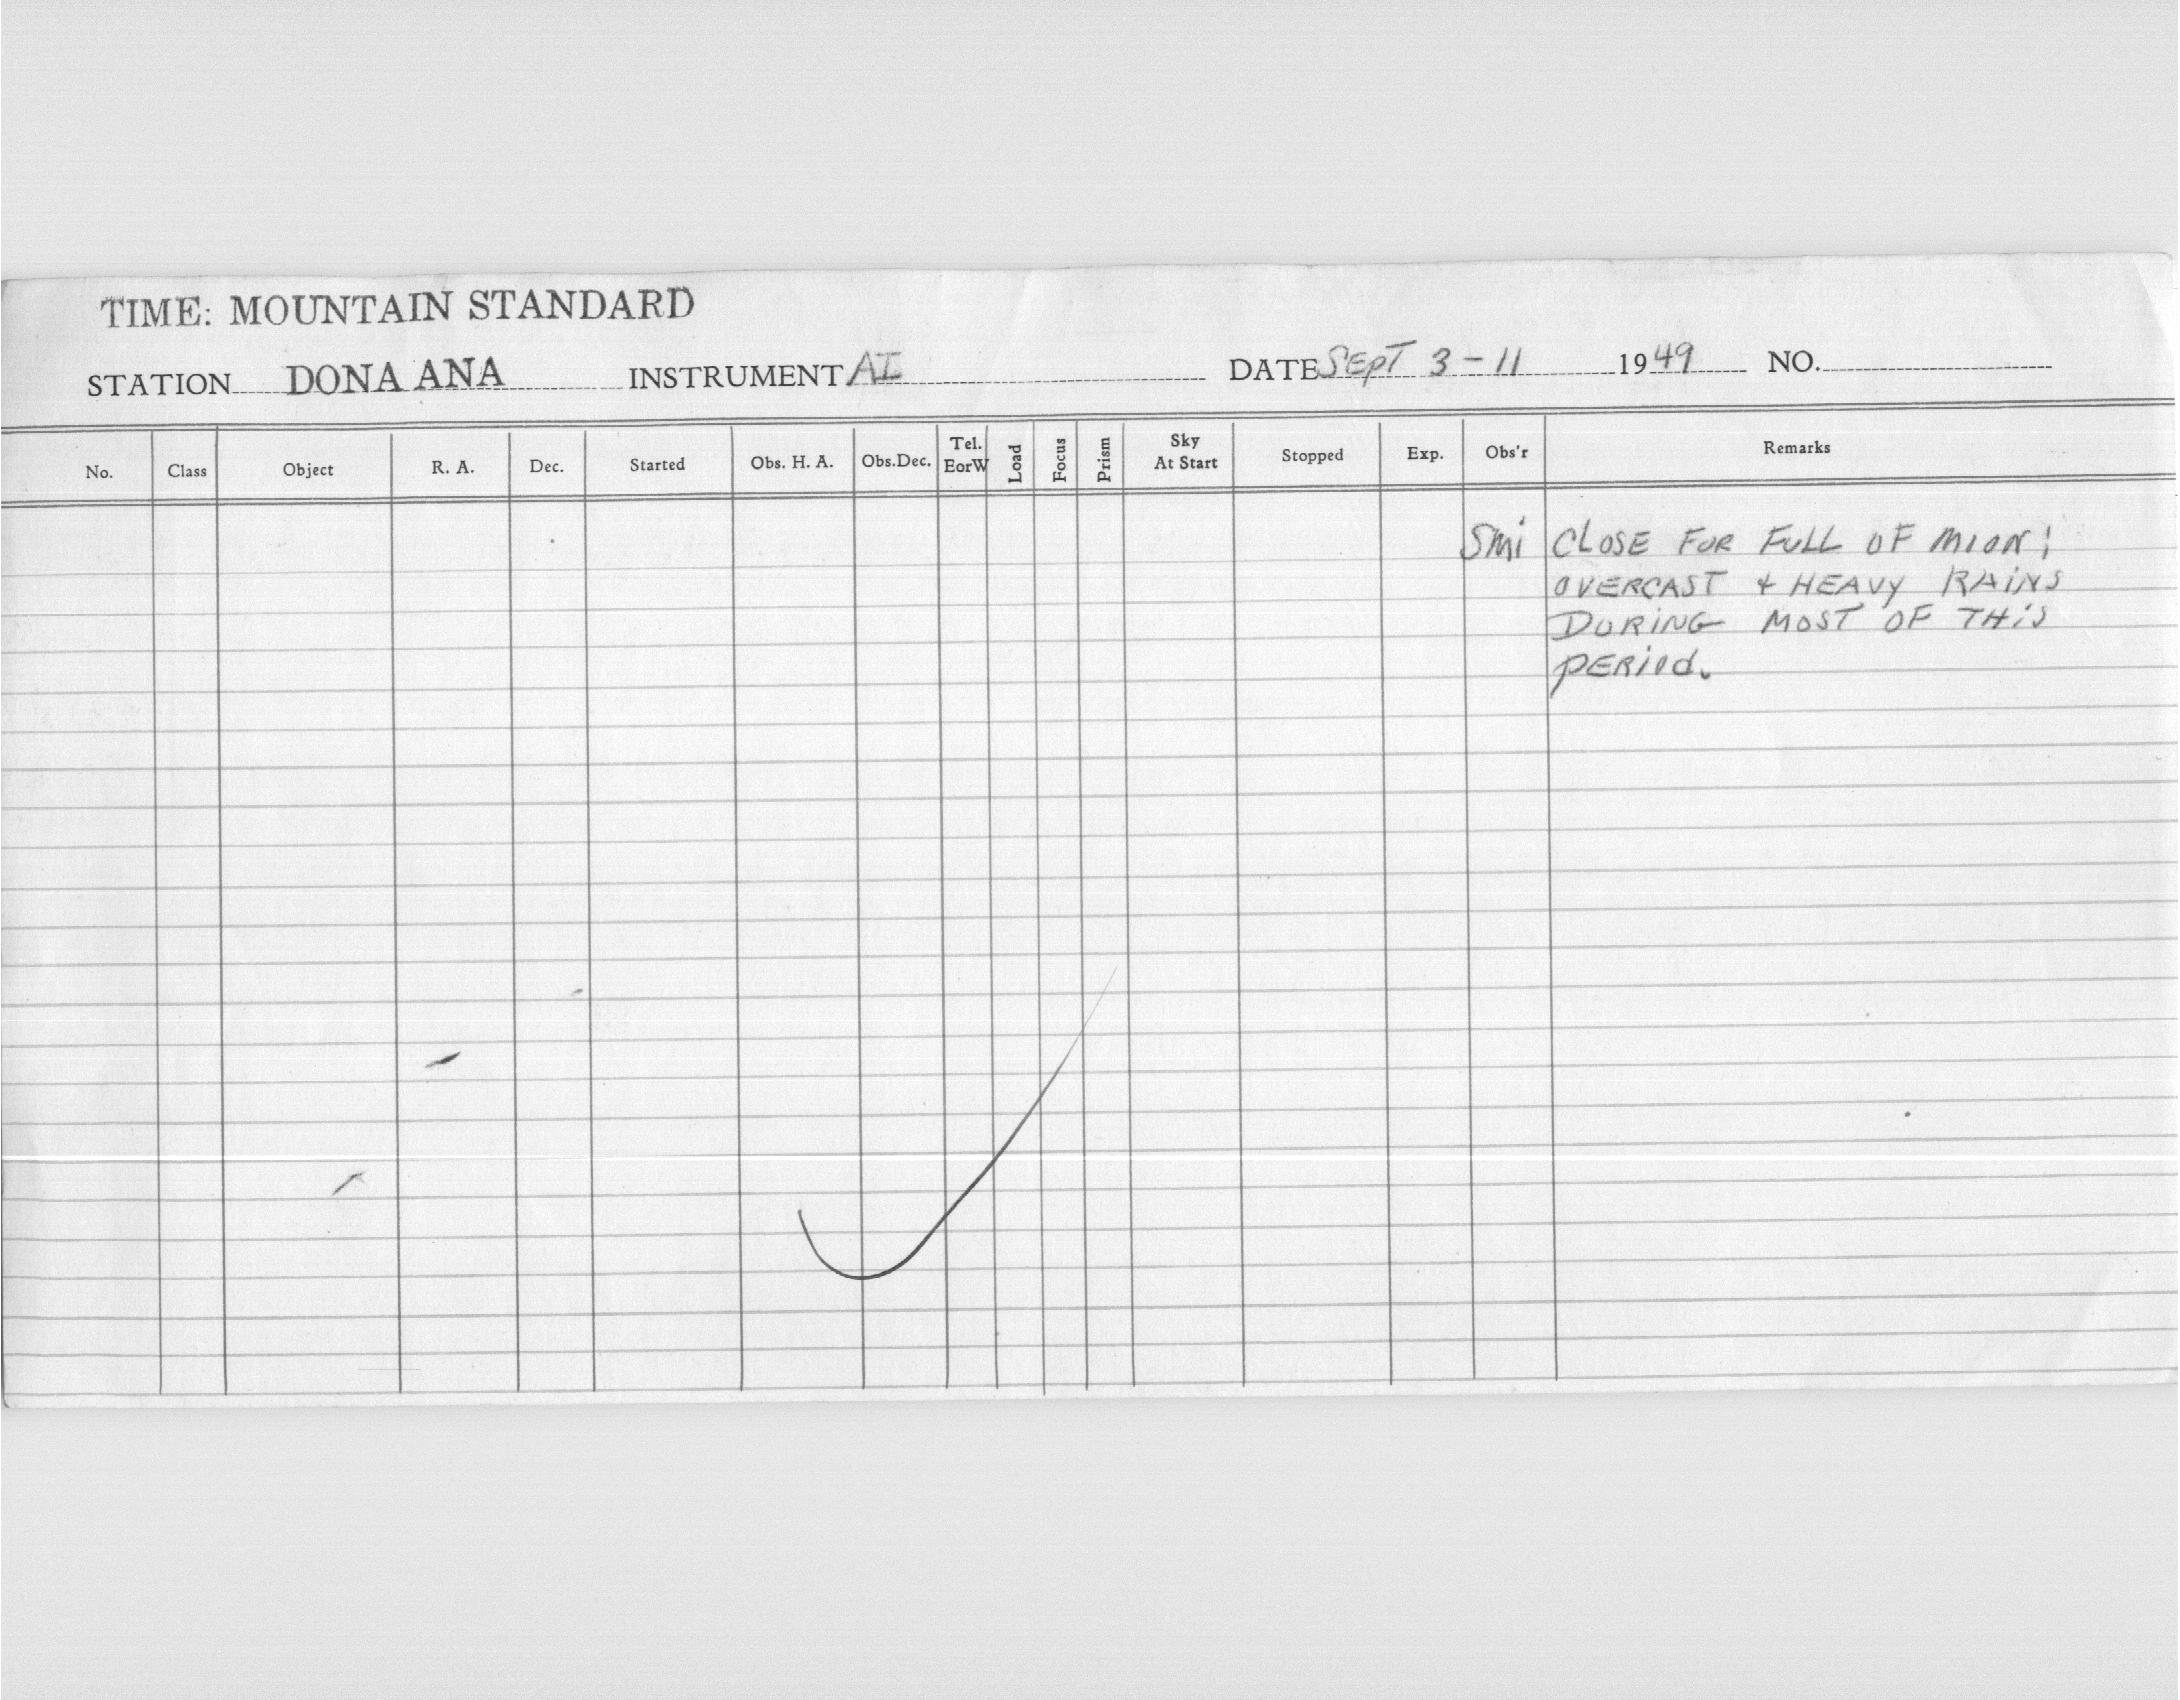 TIME: MOUNTAIN STANDARD
STATION DONA ANA INSTRUMENT AI DATE SEPT 3 - 11 1949 NO.
No. Class Object R. A. Dec. Started Obs. H. A. Obs.Dec. Tel. EorW Load Focus Prism Sky At Start Stopped Exp. Obs'r Remarks
Smi CLOSE FOR FULL OF MOON;
OVERCAST + HEAVY RAINS
DURING MOST OF THIS
PERIOD.